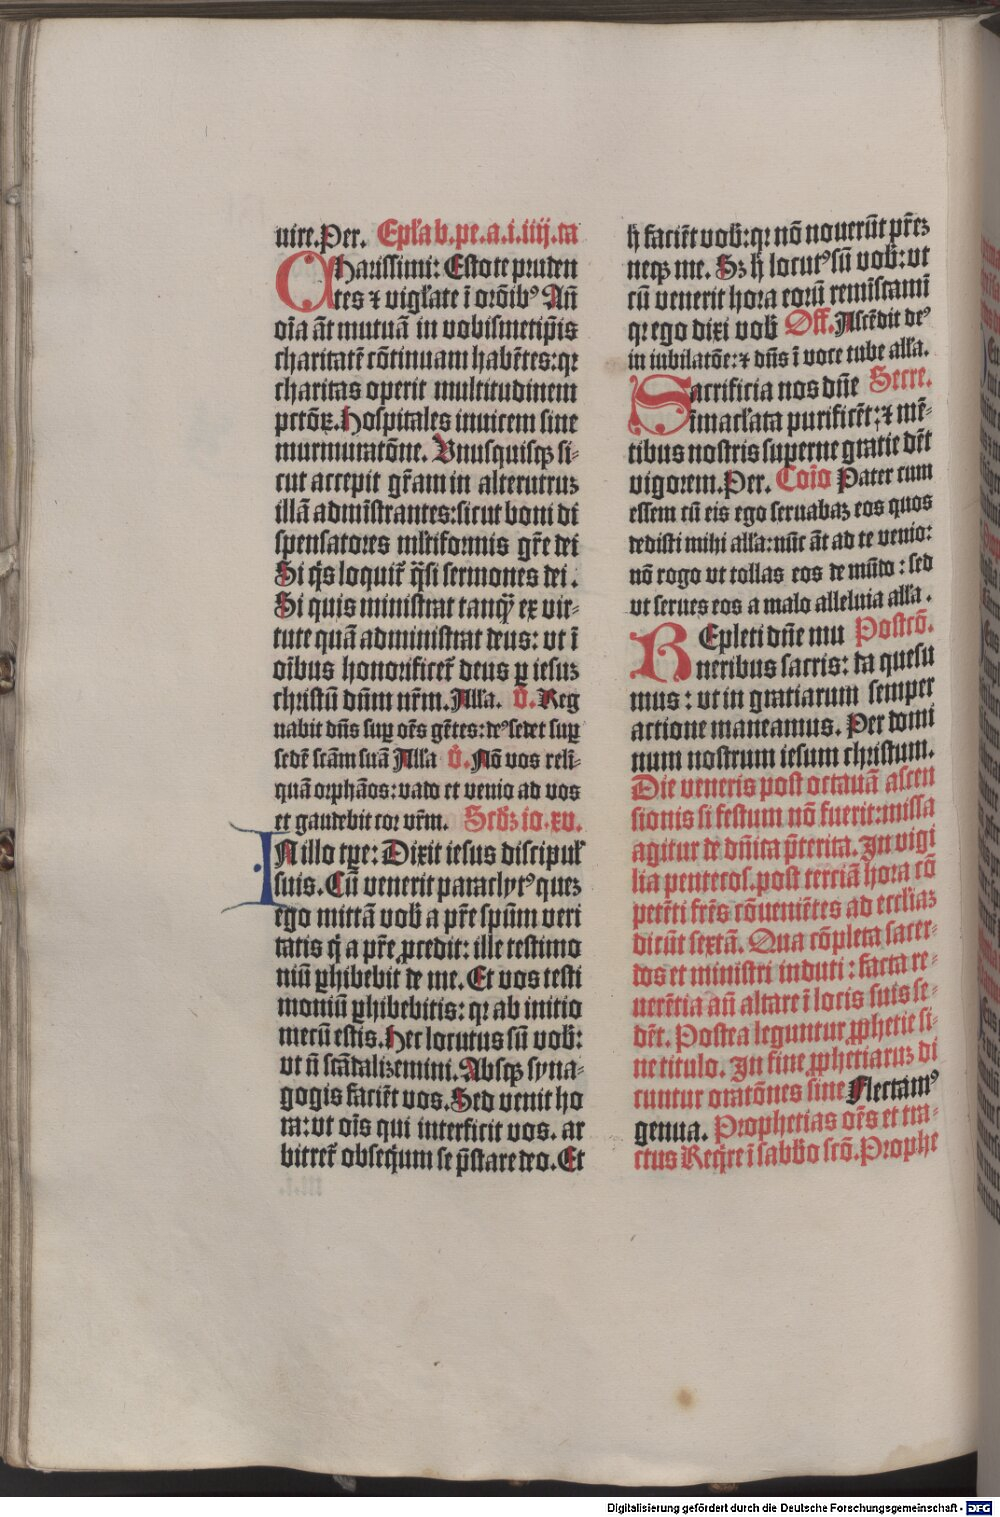 uire. Per. Ep̄la b. pe. a. i. iiij. ca
Charissimi: Estote pruden
tes ⁊ vigl̄ate ī or̄oībꝰ Añ
oīa āt mutuā in vobismetip̄is
charitatē cōtinuam habētes: qꝛ
charitas operit multitudinem
pctōꝝ. Hospitales inuicem sine
murmuratōne. Vnusquisqꝫ si-
cut accepit gr̄am in alterutruꝫ
illā admīstrantes: sicut boni di
spensatores ml̄tiformis gr̄e dei
Si q̄s loquit̄ q̄si sermones dei.
Si quis ministrat tanq̄ ex vir-
tute quā administrat deus: vt ī
oībus honorificet̄ deus ꝑ iesuꝫ
christū dūm nr̄m. Alla. v̄. Reg
nabit dn̄s suꝑ oēs gētes: deꝰ sedet suꝑ
sedē scām suā Alla v̄. Nō vos reli-
quā orphāos: vado et venio ad vos
et gaudebit cor vr̄m. Scd̄ꝫ io. xv.
IN illo tꝑe: Dixit iesus discipul̄
suis. Cū venerit paraclytꝰ queꝫ
ego mittā vob̄ a pr̄e spūm veri
tatis q̄ a pr̄e ꝓcedit: ille testimo
niū ꝑhibebit de me. Et vos testi
moniū ꝑhibebitis: qꝛ ab initio
mecū estis. Hec locutus sū vob̄:
vt ñ scādalizemini. Absqꝫ syna-
gogis faciēt vos. Sed venit ho
ra: vt oīs qui interficit vos. ar
bitret̄ obseq̄um se p̄stare deo. Et
h̄ faciēt vob̄: qꝛ nō nouerūt pr̄eꝫ
neqꝫ me. Sꝫ h̄ locutꝰ sū vob̄: vt
cū venerit hora eorū remīscamī
qꝛ ego dixi vob̄ Off. Ascēdit deꝰ
in iubilatōe: ⁊ dn̄s ī voce tube alla.
Sacrificia nos dn̄e Secre.
īmacl̄ata purificēt: ⁊ mē-
tibus nostris superne gratie dēt
vigorem. Per. Cōio Pater cum
essem cū eis ego seruabaꝫ eos quos
dedisti mihi alla: nūc āt ad te venio:
nō rogo vt tollas eos de mūdo: sed
vt serues eos a malo alleluia alla.
REpleti dn̄e mu Postcō.
neribus sacris: da quesu
mus: vt in gratiarum semper
actione maneamus. Per domi
num nostrum iesum christum.
Die veneris post octauā ascen
sionis si festum nō fuerit: missa
agitur de dn̄ica p̄terita. In vigi
lia pentecos. post terciā hora cō
petēti fr̄es cōueniētes ad eccl̄iaꝫ
dicūt sextā. Qua cōpleta sacer-
dos et ministri induti: facta re-
uerētia añ altare ī locis suis se-
dēt. Postea leguntur ꝓphetie si-
ne titulo. In fine ꝓphetiaruꝫ di
cuntur oratōnes sine Flectamꝰ
genua. Prophetias oēs et tra-
ctus Req̄re ī sabb̄o scō. Prophe